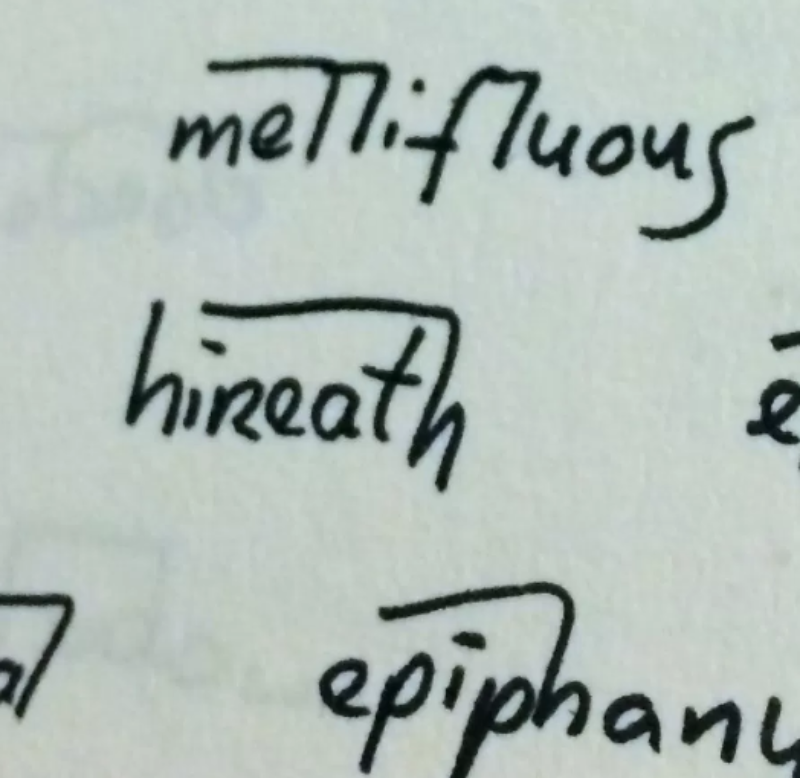 mellifluous
hireath
epiphany